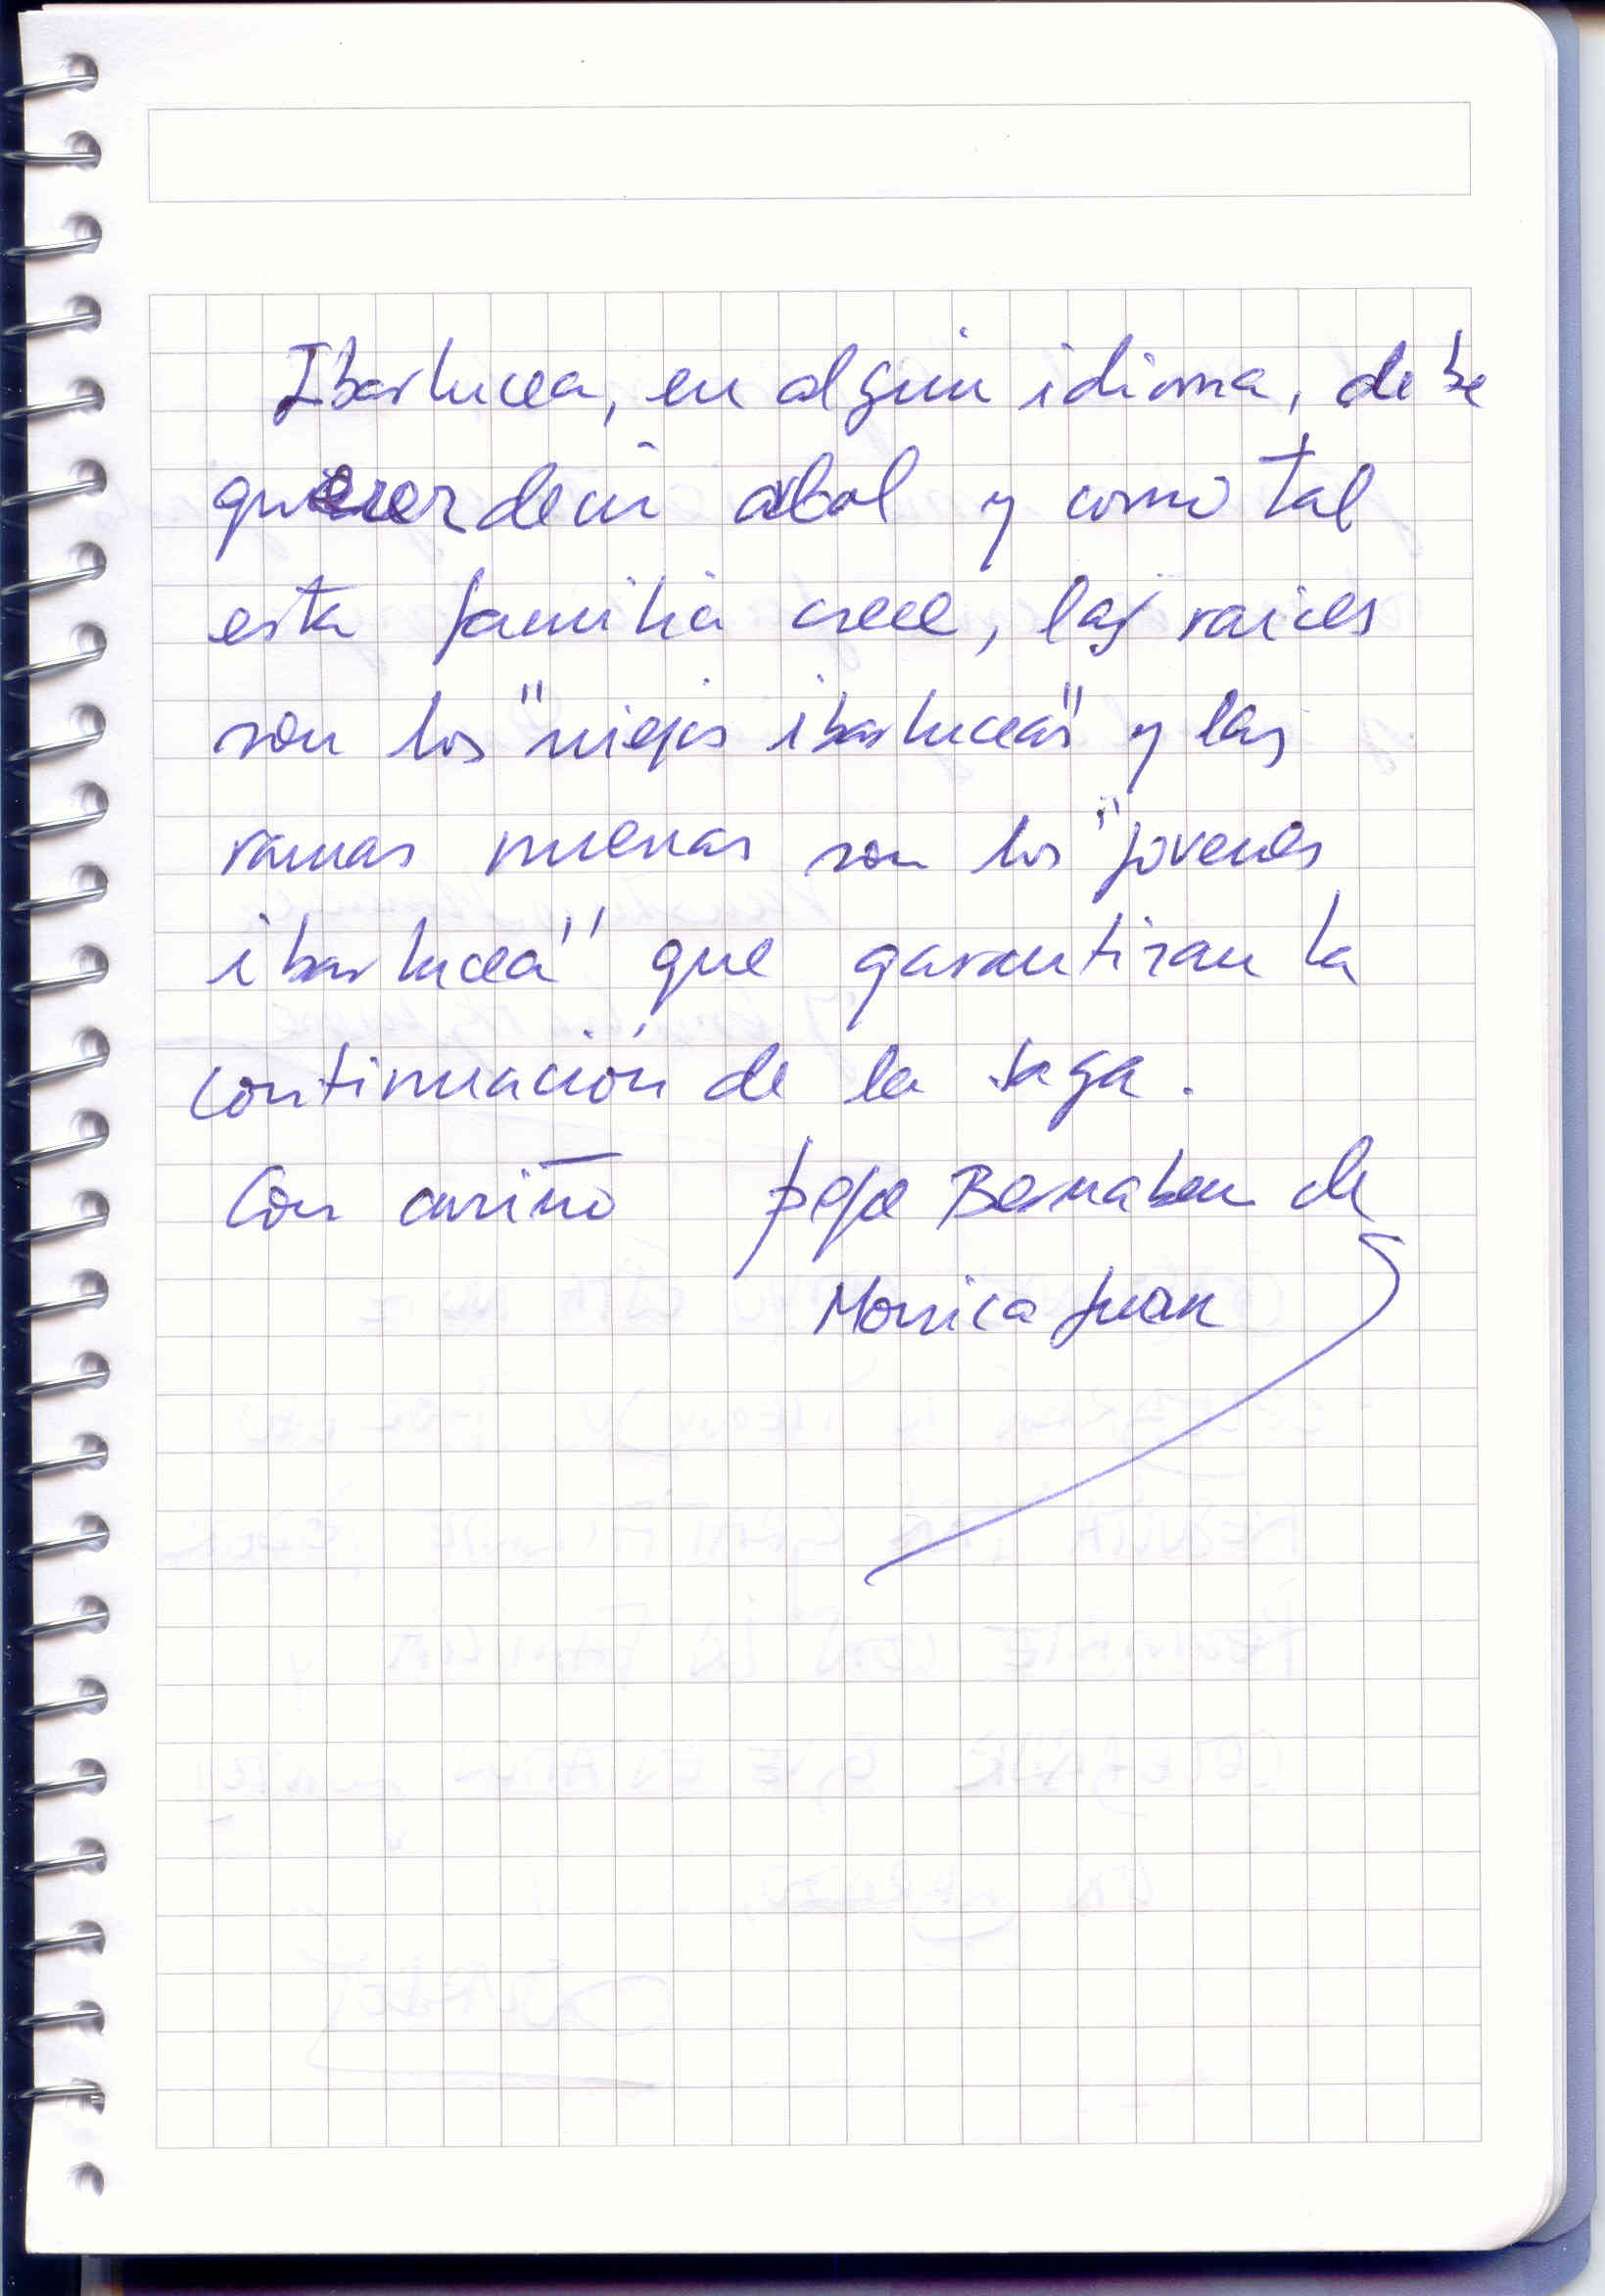 Ibarlucea, en algun idioma, debe
querer decir arbol y como tal
esta familia crece, las raices
son los "viejos ibarlucea" y las
ramas nuevas son los "jovenes
ibarlucea" que garantizan la
continuación de la saga.
Con cariño pepe Bernabeu de
Monica Juan